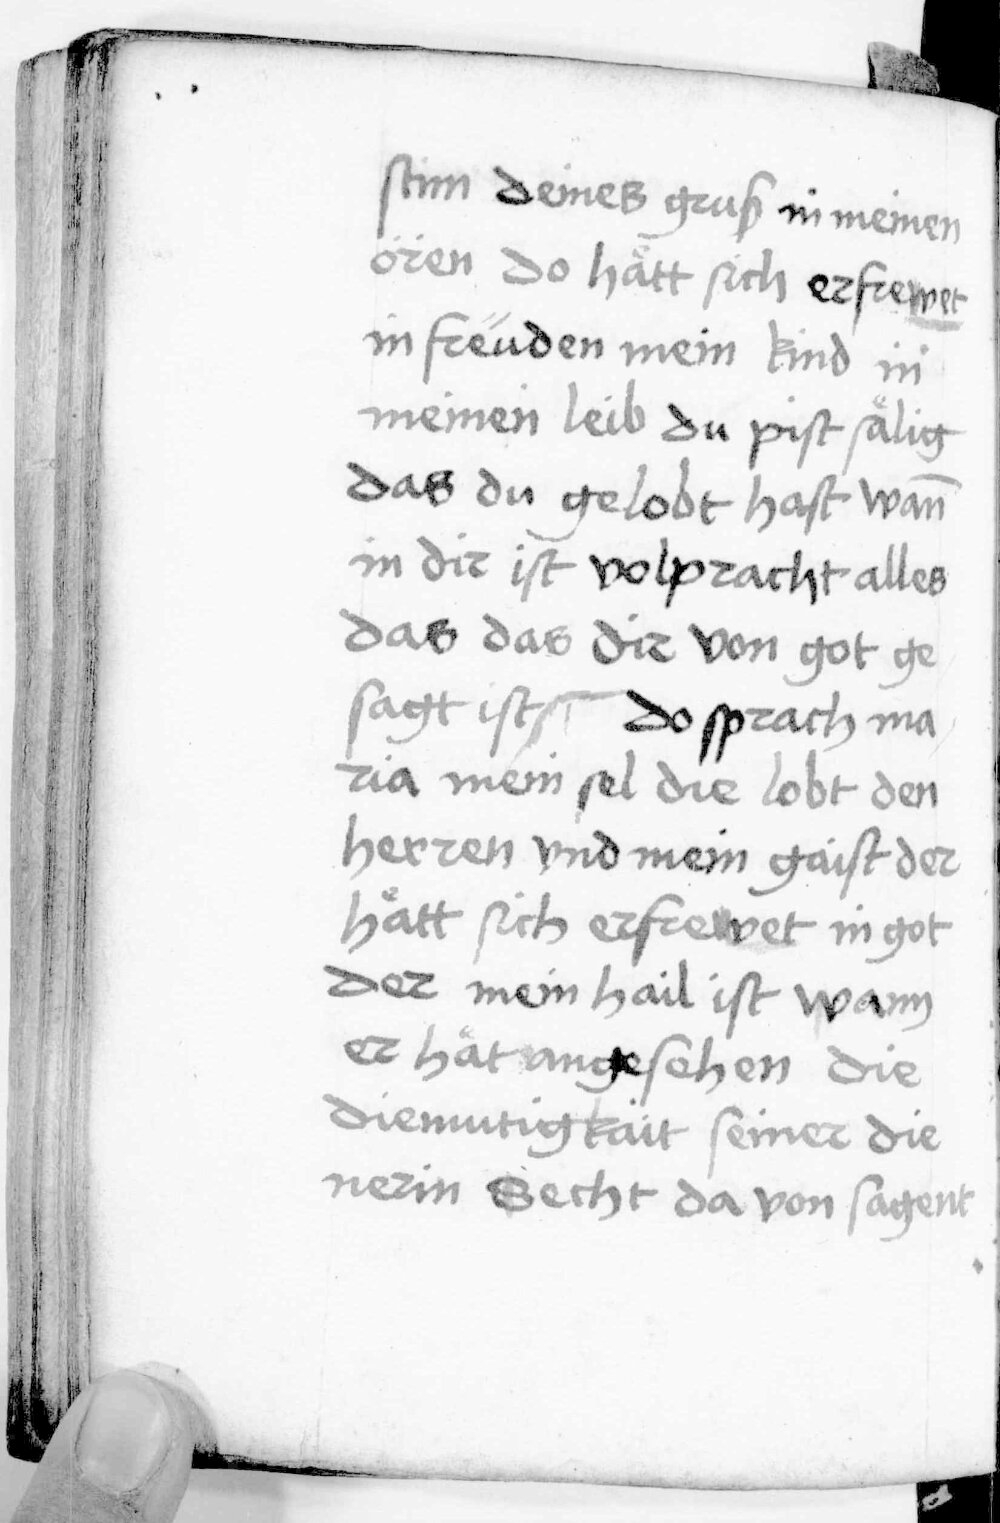 stim deines gruß in meinen
ören do hätt sich erfrewet
in freüden mein kind in
meinen leib du pist sälig
das du gelobt hast wan̄
in dir ist volpracht alles
das das dir von got ge
sagt ist do sprach ma
ria mein sel die lobt den
herren vnd mein gaist der
hätt sich erfrewet in got
der mein hail ist wann
er hät angesehen die
diemutigkait seiner die
nerin Secht da von sagent